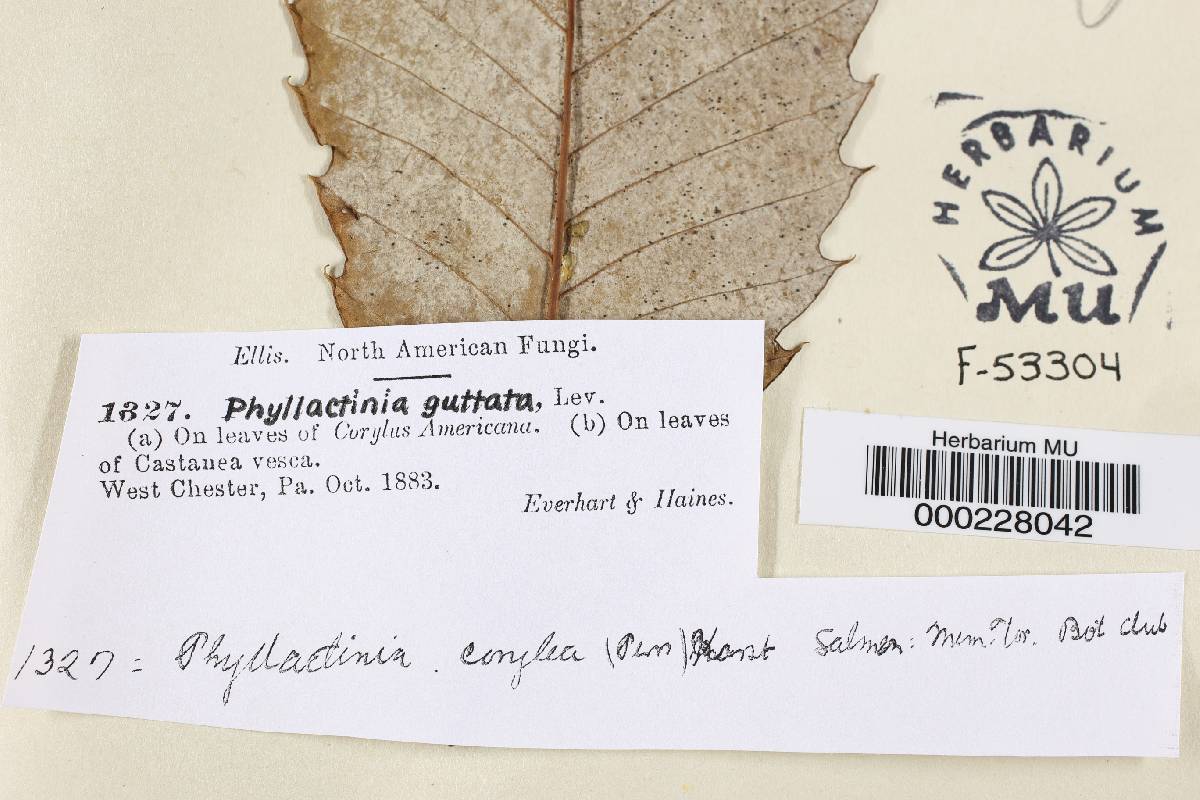 HERBARIUM
MU
F-53304
Ellis. North American Fungi.
1327. Phyllactinia guttata, Lev.
(a) On leaves of Corylus Americana. (b) On leaves
of Castanea vesca.
West Chester, Pa. Oct. 1883.
Everhart & Haines.
Herbarium MU
000228042
1327 = Phyllactinia . corylea (Pers) Karst Salmon: Mem. Tor. Bot Club